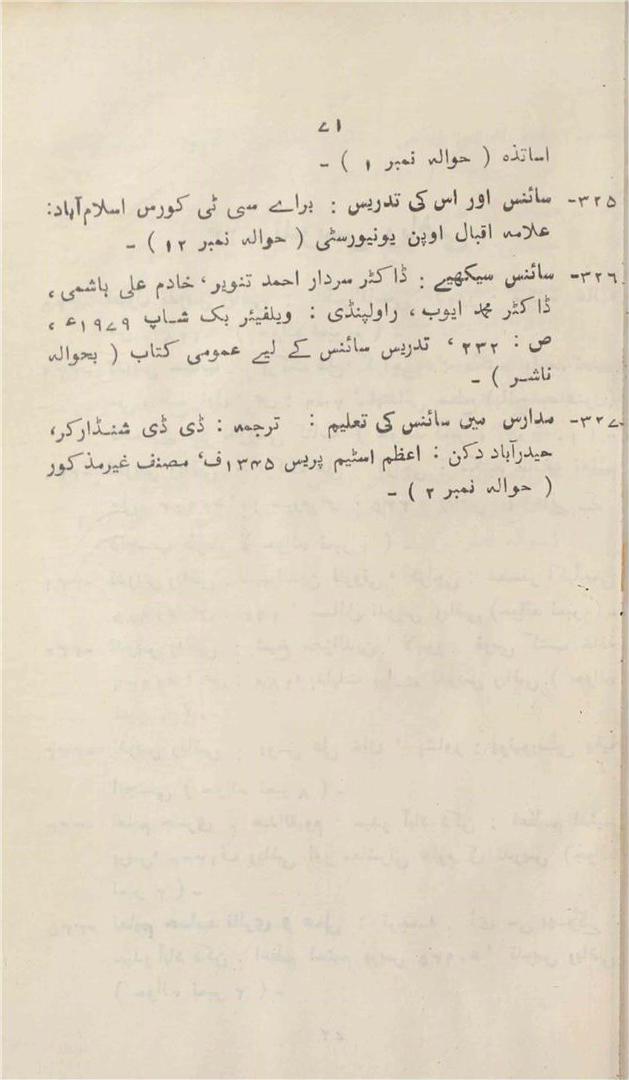 ۷۱
اساتذہ ( حوالہ نمبر ۱ ) ۔
۳۲۵۔ سائنس اور اس کی تدریس : براے سی ٹی کورس اسلام آباد:
علامہ اقبال اوپن یونیورسٹی ( حوالہ نمبر ۱۲ ) ۔
۳۲۶۔ سائنس سیکھیے : ڈاکٹر سردار احمد تنویر، خادم علی ہاشمی،
ڈاکٹر محمد ایوب، راولپنڈی : ویلفیئر بک شاپ ۱۹۷۹ء،
ص : ۲۳۲، تدریس سائنس کے لیے عمومی کتاب ( بحوالہ
ناشر ) ۔
۳۲۷۔ مدارس میں سائنس کی تعلیم : ترجمہ : ڈی ڈی شنڈارکر،
حیدرآباد دکن : اعظم اسٹیم پریس ۱۳۴۵ف، مصنف غیرمذکور
( حوالہ نمبر ۲ ) ۔